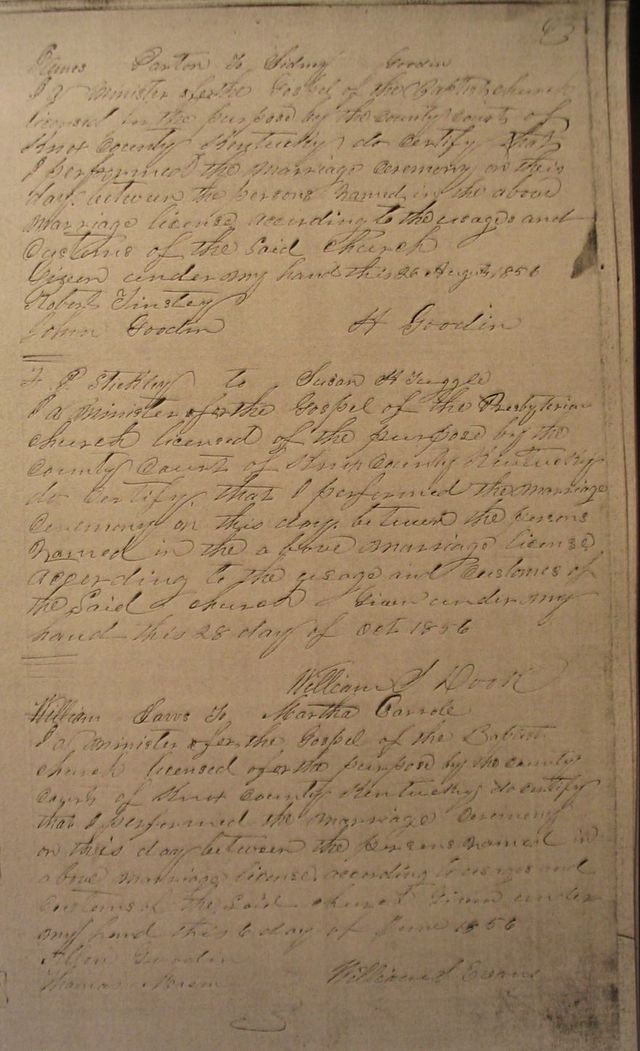 to Sidney Goodin
I a Minister of the Gospel of the Baptist church
licensed for the purpose by the county court of
Knox County Kentucky do certify that
I performed the marriage ceremony on this
day between the persons named in the above
marriage license according to the usages and
customs of the Said church
Given under my hand this 26 August 1856
Robert Tinsley
John Goodin H Goodin
to Susan H Tuggle
I a Minister of the Gospel of the Presbyterian
church licensed of the purpose by the
County Court of Knox County Kentucky
do certify that I performed the marriage
ceremony on this day between the persons
named in the above marriage license
according to the usage and customes of
the Said church Given under my
hand this 28 day of Oct 1856
William
William to Martha
I a Minister of the Gospel of the Baptist
church licensed the purpose by the county
Court of Knox County Kentucky do certify
that I performed the marriage ceremony
on this day between the persons named in
above marriage license according to usages and
customs of the Said church Given under
my hand this 6 day of June 1856
Thomas William Evans